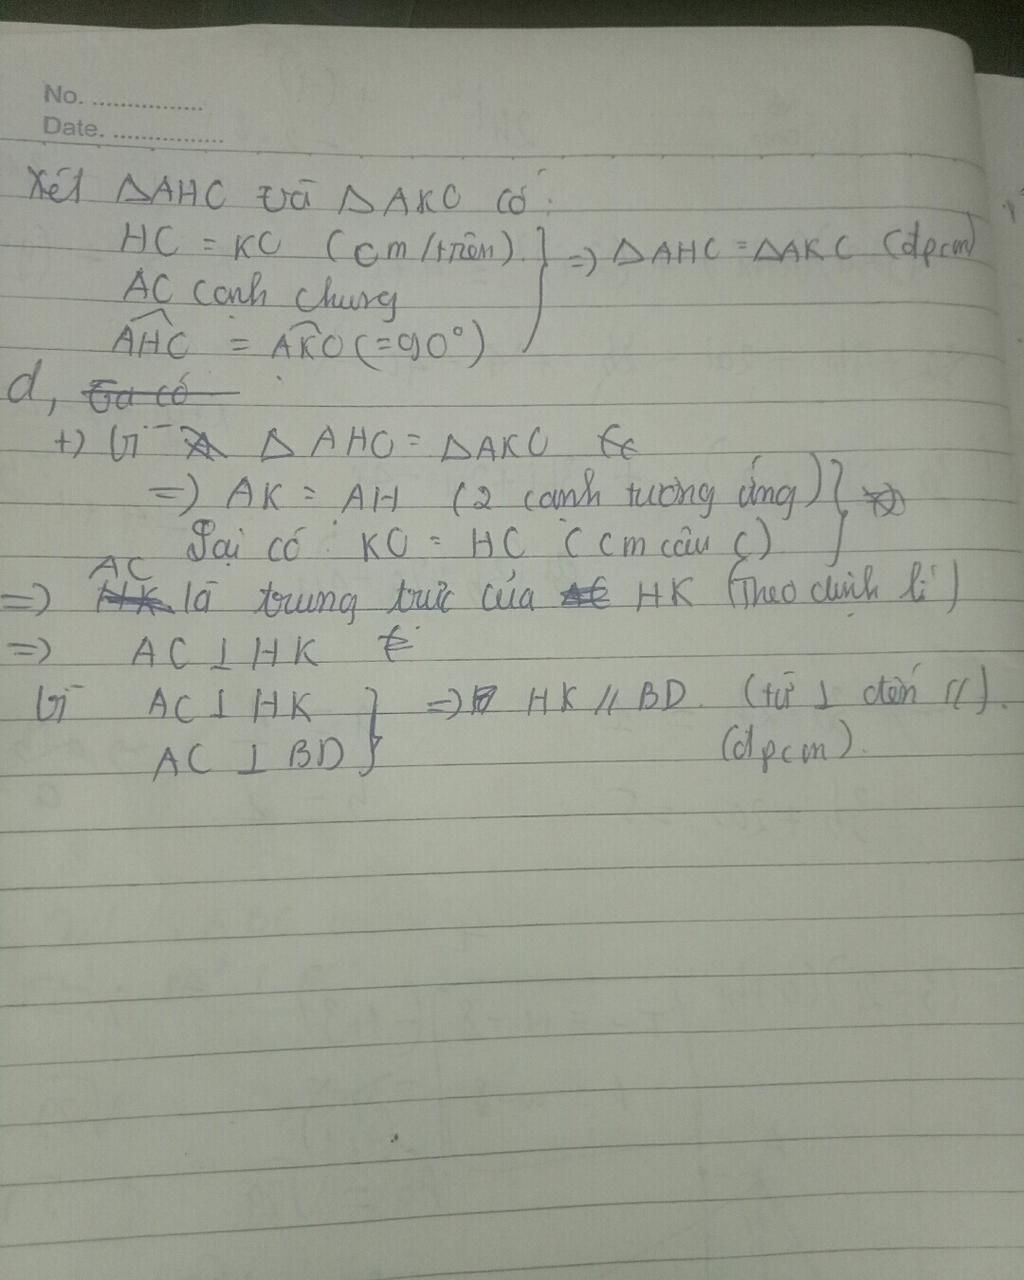 No. ................
Date. ................
Xét ΔAHC và ΔAKC có:
HC = KC (cm/trên) } => ΔAHC = ΔAKC (đpcm)
AC cạnh chung
AHC = AKC (= 90°)
d, Ta có
+) Vì ΔAHC = ΔAKC
=> AK = AH (2 cạnh tương ứng) }
Lại có: KC = HC (cm câu c)
=> AC là trung trực của HK (Theo định lí)
=> AC ⊥ HK
Vì AC ⊥ HK } => HK // BD. (từ ⊥ đến //).
AC ⊥ BD (đpcm).